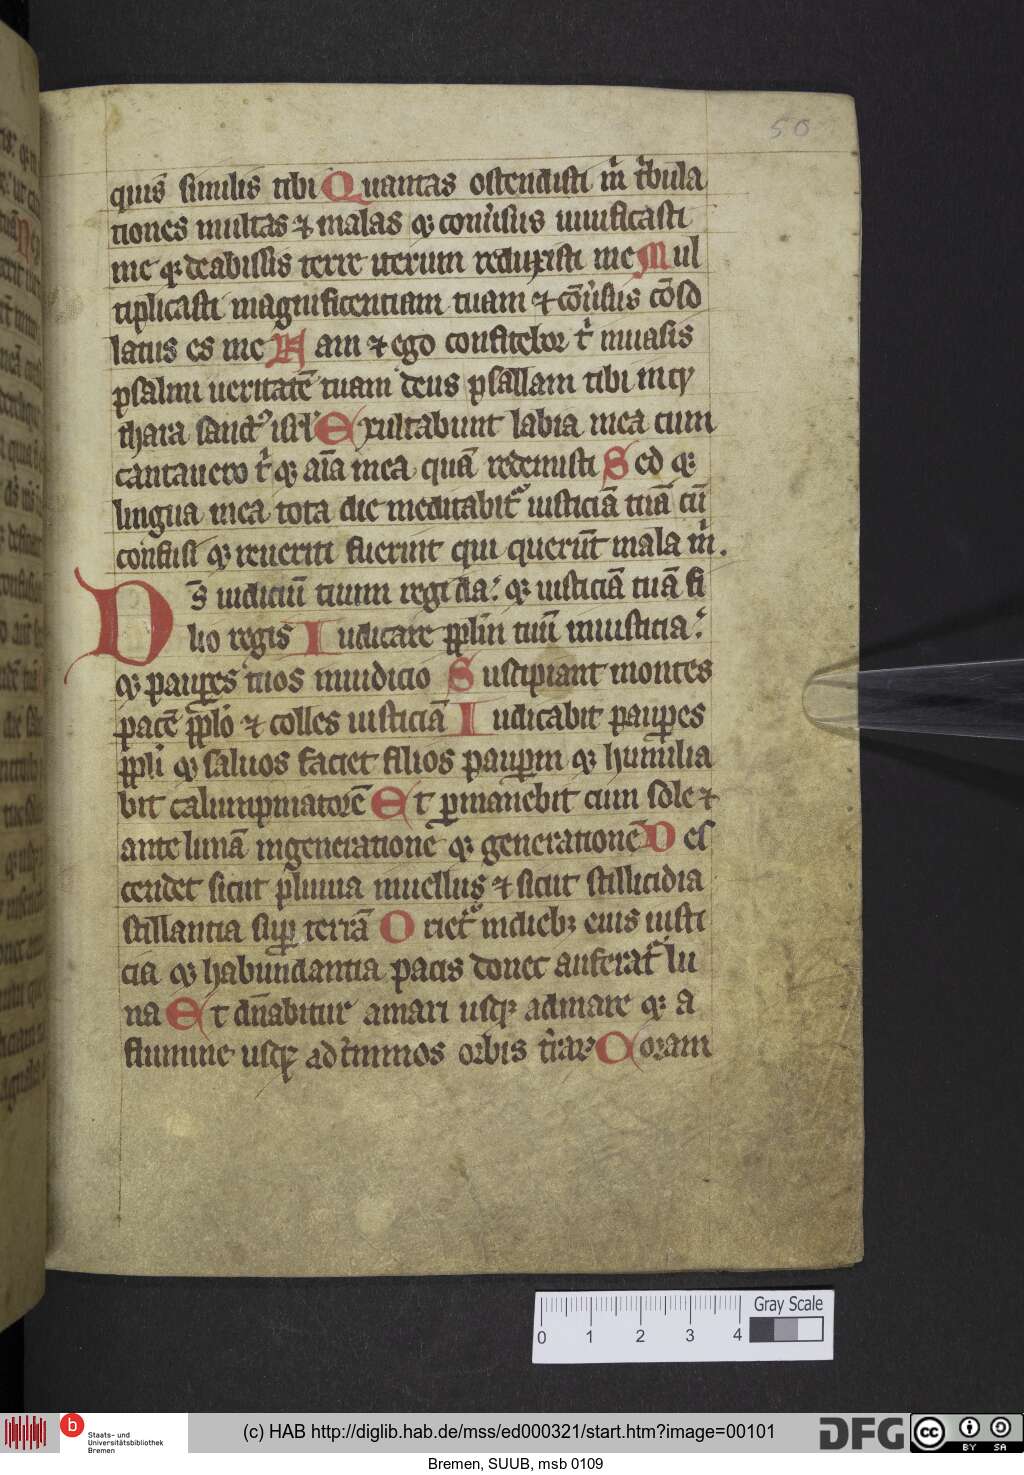 50
quis̄ similis tibi Quantas ostendisti m̍ t̍bula
tiones multas ⁊ malas ⁊ conu̍sus uiuificasti
me ⁊ deabissis terre iterum reduxisti me Mul
tiplicasti magnificentiam tuam ⁊ cōu̍sus cōso
latus es me Nam ⁊ ego confitebor t̍ inuasis
psalmi ueritatē tuam deus psallam tibi incy
thara sanct᷒ isrl̍ Exultabunt labia mea cum
cantauero t̍ ⁊ aīa mea quā redemisti Sed ⁊
lingua mea tota die meditabit᷑ iusticiā tuā cū
confusi ⁊ reueriti fuerint qui querūt mala m̍.
Ds̄ iudiciū tuum regi da: ⁊ iusticiā tuā fi
lio regis Iudicare pp̄lm tuū iniusticia:
⁊ pauꝑes tuos iniudicio Suscipiant montes
pacē pp̄lo ⁊ colles iusticiā Iudicabit pauꝑes
pp̄li ⁊ saluos faciet filios pauꝑum ⁊ humilia
bit calumpniatorē Et ꝑmanebit cum sole ⁊
ante lunā ingeneratione ⁊ generationē Des
cendet sicut pluuia inuellus ⁊ sicut stillicidia
stillantia suꝑ terrā Oriet᷑ indieb; eius iusti
cia ⁊ habundantia pacis donec auferat᷑ lu
na Et dn̄abitur amari usq; admare ⁊ a
flumine usq; ad t̍minos orbis t̍rar᷑ Coram
0 1 2 3 4
Gray Scale
Staats- und
Universitätsbibliothek
Bremen
(c) HAB http://diglib.hab.de/mss/ed000321/start.htm?image=00101
DFG
cc BY SA
Bremen, SUUB, msb 0109